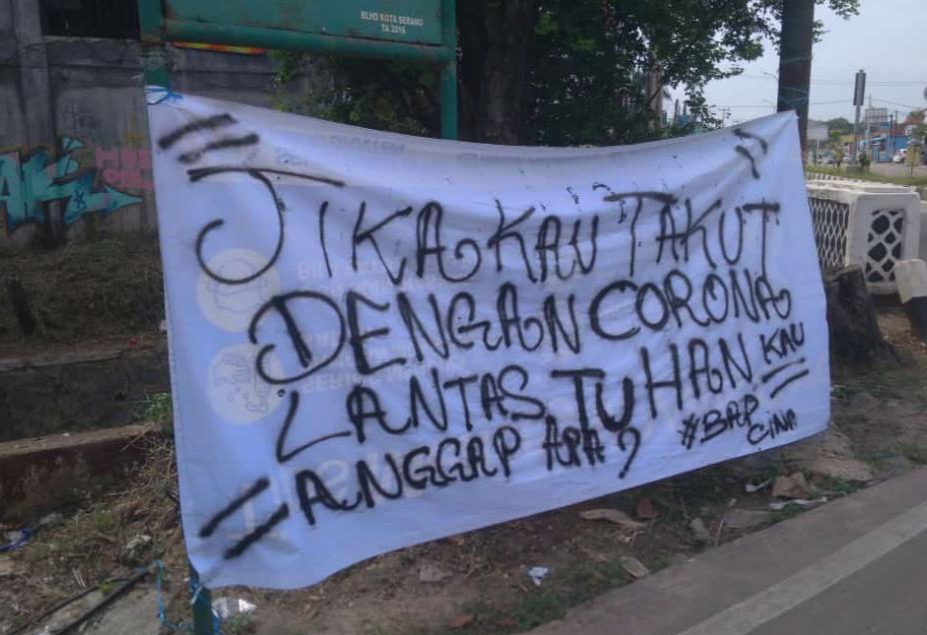 BLHD KOTA SERANG
TA 2016
JIKA KAU TAKUT
DENGAN CORONA
LANTAS TUHAN KAU
ANGGAP APA?
#BAP
CINA